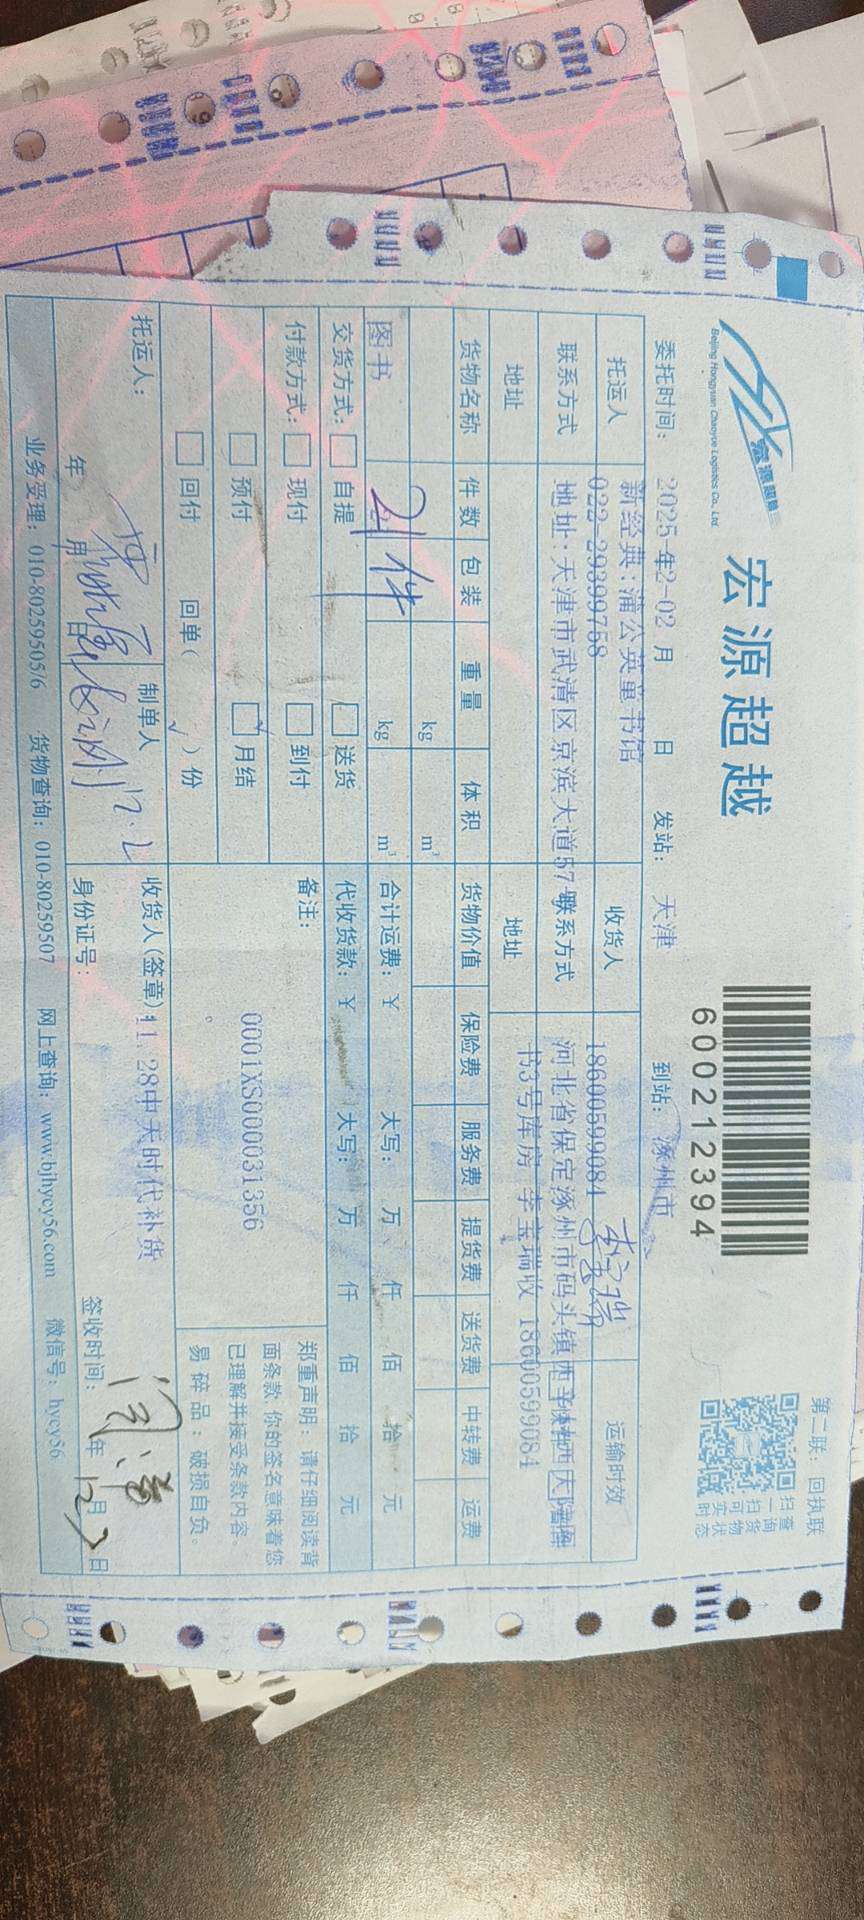 第二联：回执联
宏源超越
Beijing Hongyuan Chaoyue Logistics Co., Ltd.
宏源超越
600212394
扫一扫
查询货物
可实时状态
委托时间：2025年2-02月 日 发站：天津 到站：涿州市
托运人 新经典：蒲公英童书馆 收货人 李宝瑞 运输时效
联系方式 022-29399758 联系方式 18600599084
地址 地址：天津市武清区京滨大道57号 地址 河北省保定涿州市码头镇西
书3号库房 李宝瑞收 18600599084
货物名称 件数 包装 重量 体积 货物价值 保险费 服务费 提货费 送货费 中转费 运费
kg m³
图书 21件 kg m³ 合计运费：￥ 大写： 万 仟 佰 拾 元
交货方式：□自提 □送货 代收货款：￥ 大写： 万 仟 佰 拾 元
付款方式：□现付 □到付 备注：
□预付 □月结
□回付 回单（ √ ）份
0001XS000031356
。
郑重声明：请仔细阅读背
面条款，你的签名意味着您
已理解并接受条款内容。
易碎品：破损自负。
托运人： 制单人 12.2 收货人（签章）：11 28中天时代补货
年 月 日 身份证号： 签收时间： 年 12月 日
业务受理：010-80259505/6 货物查询：010-80259507 网上查询：www.bjhycy56.com 微信号：hycy56